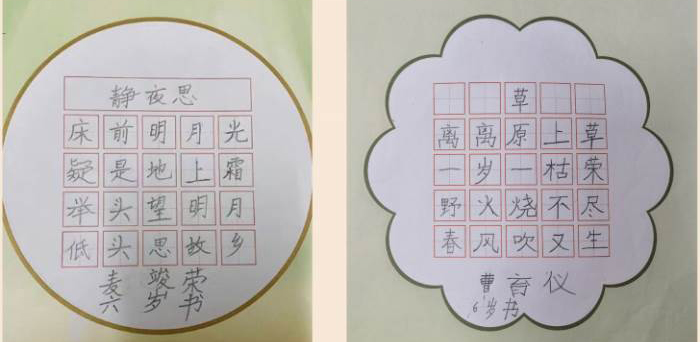 静夜思
床前明月光
疑是地上霜
举头望明月
低头思故乡
麦竣荣
六岁书
草
离离原上草
一岁一枯荣
野火烧不尽
春风吹又生
曹育仪
6岁书